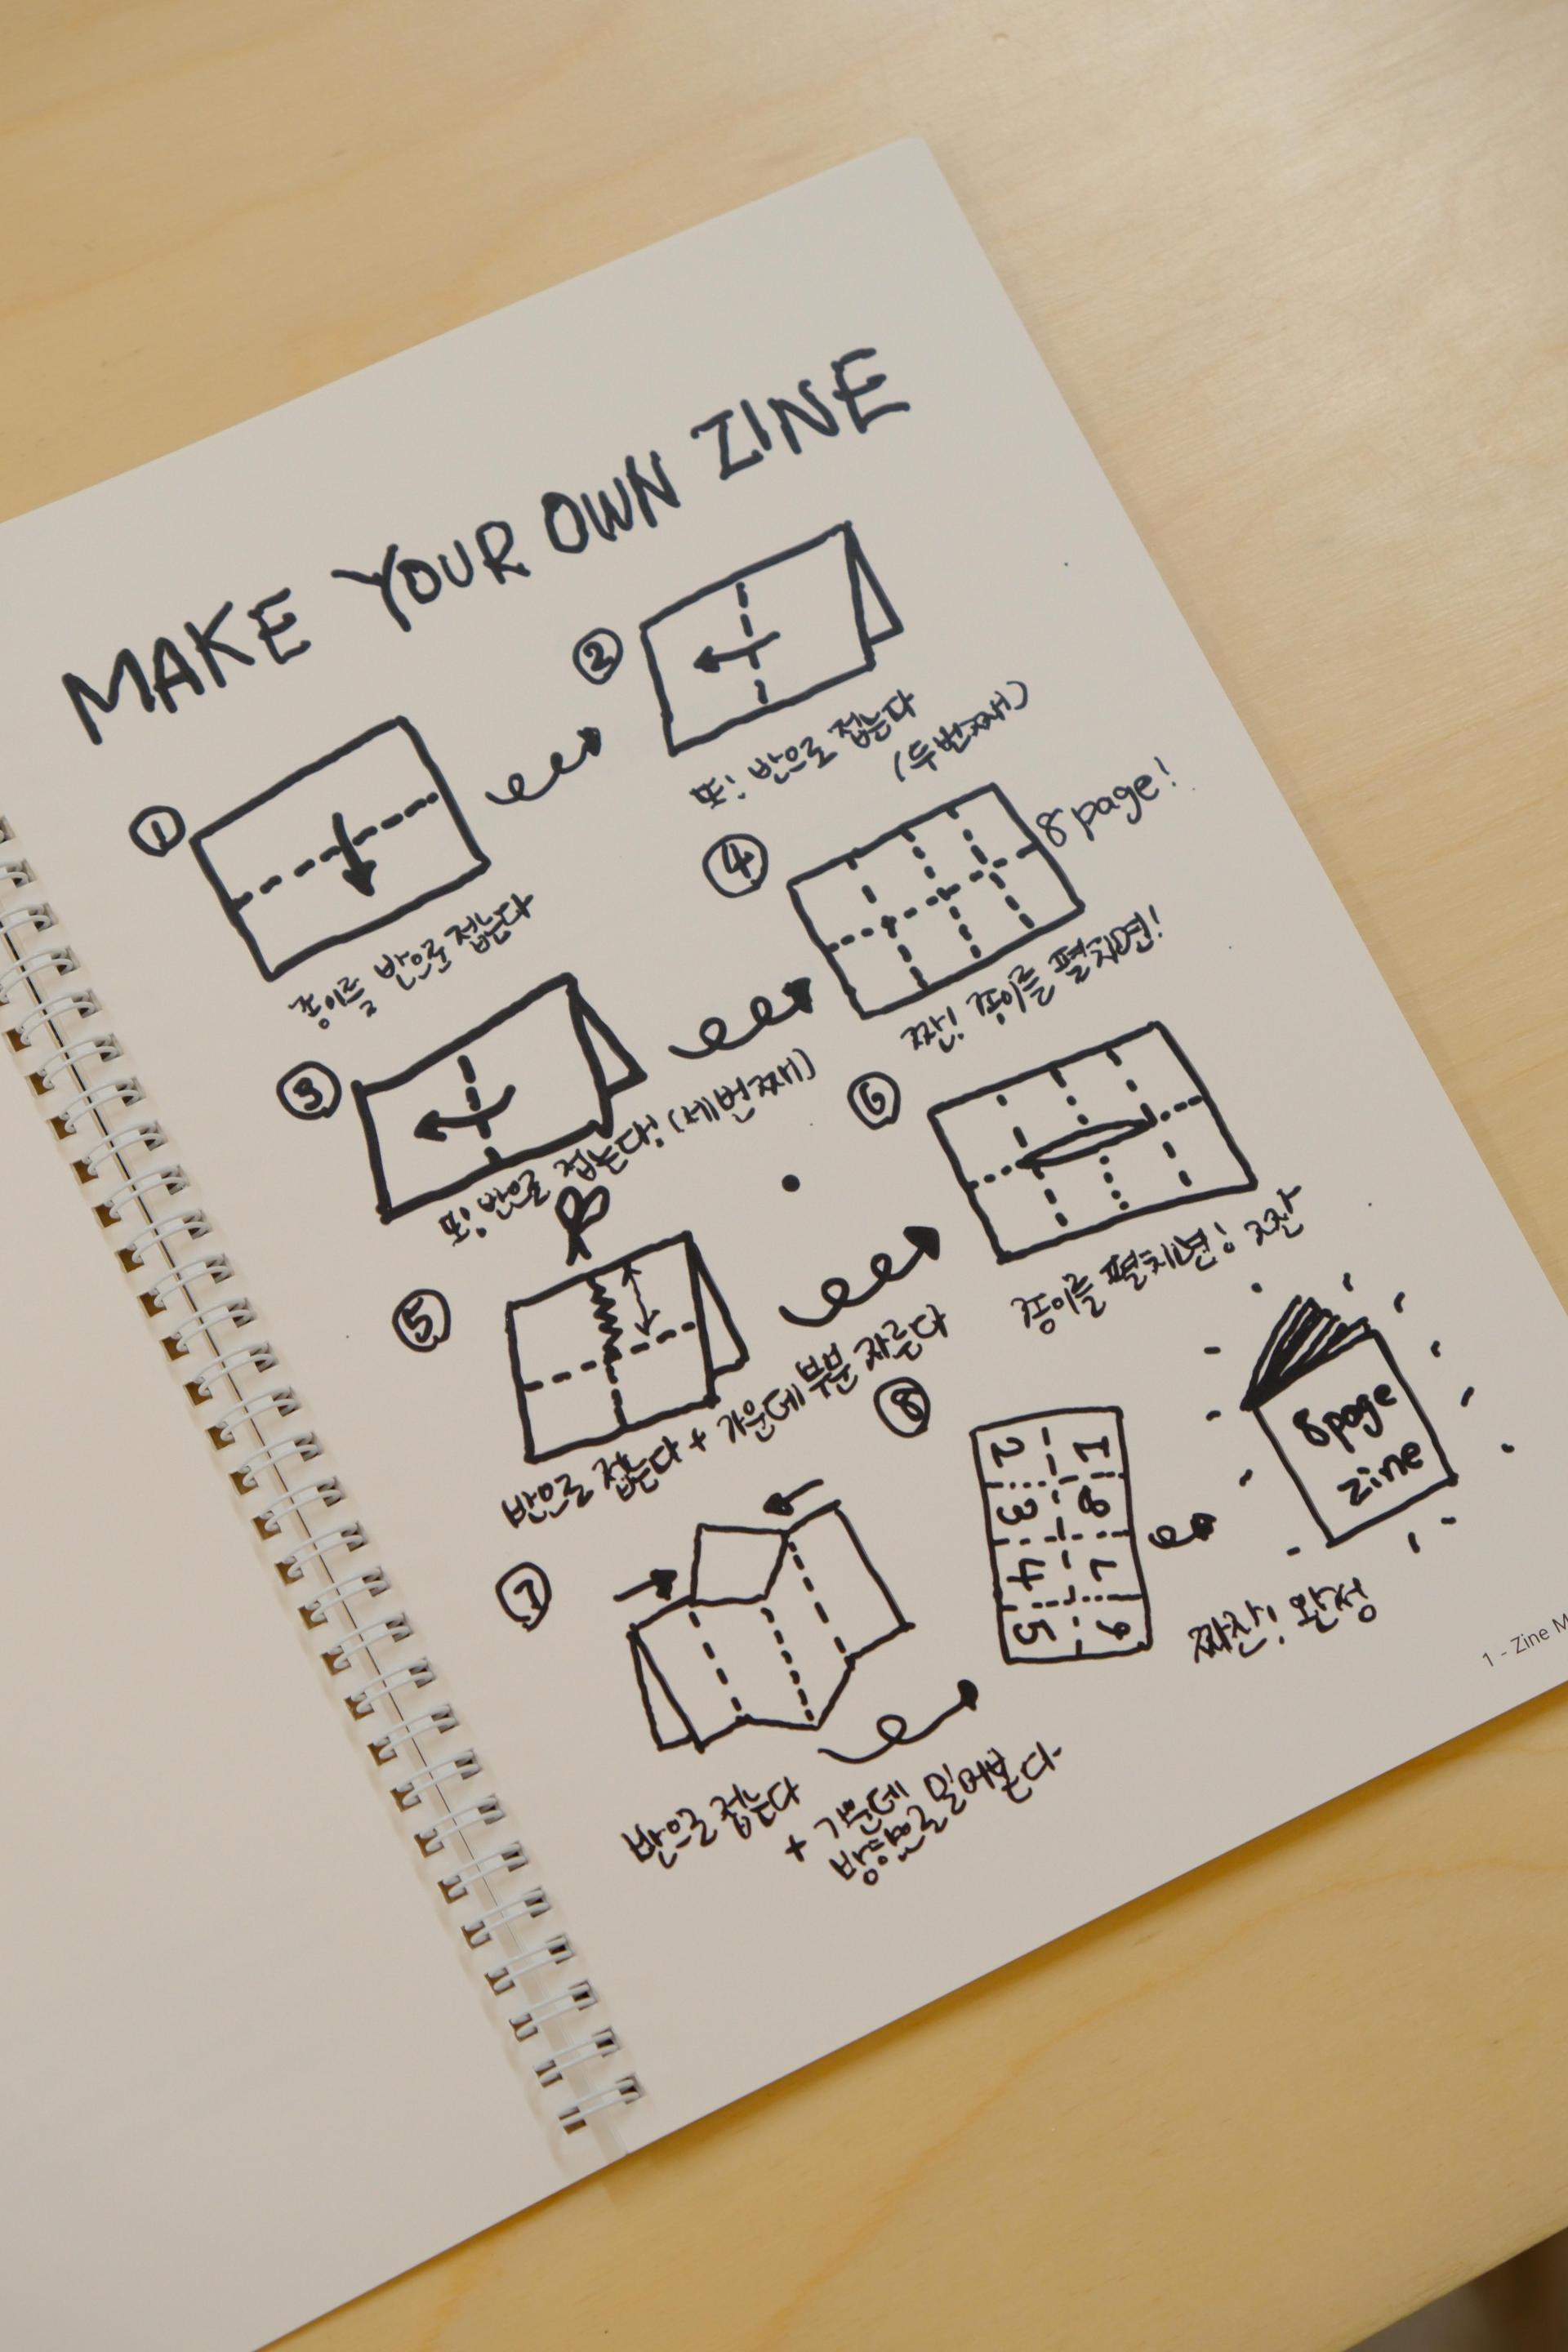 MAKE YOUR OWN ZINE
①
종이를 반으로 접는다
②
또! 반으로 접는다
(두번째)
③
또! 반으로 접는다! (세번째)
④
8 page!
짠! 종이를 펼치면!
⑤
반으로 접는다 + 가운데 부분 자른다
⑥
종이를 펼치면! 짜잔
⑦
반으로 접는다
+ 가운데
방향으로 밀어본다
⑧
2 1
3 8
4 7
5 6
8page
zine
짜잔! 완성
1 - Zine M